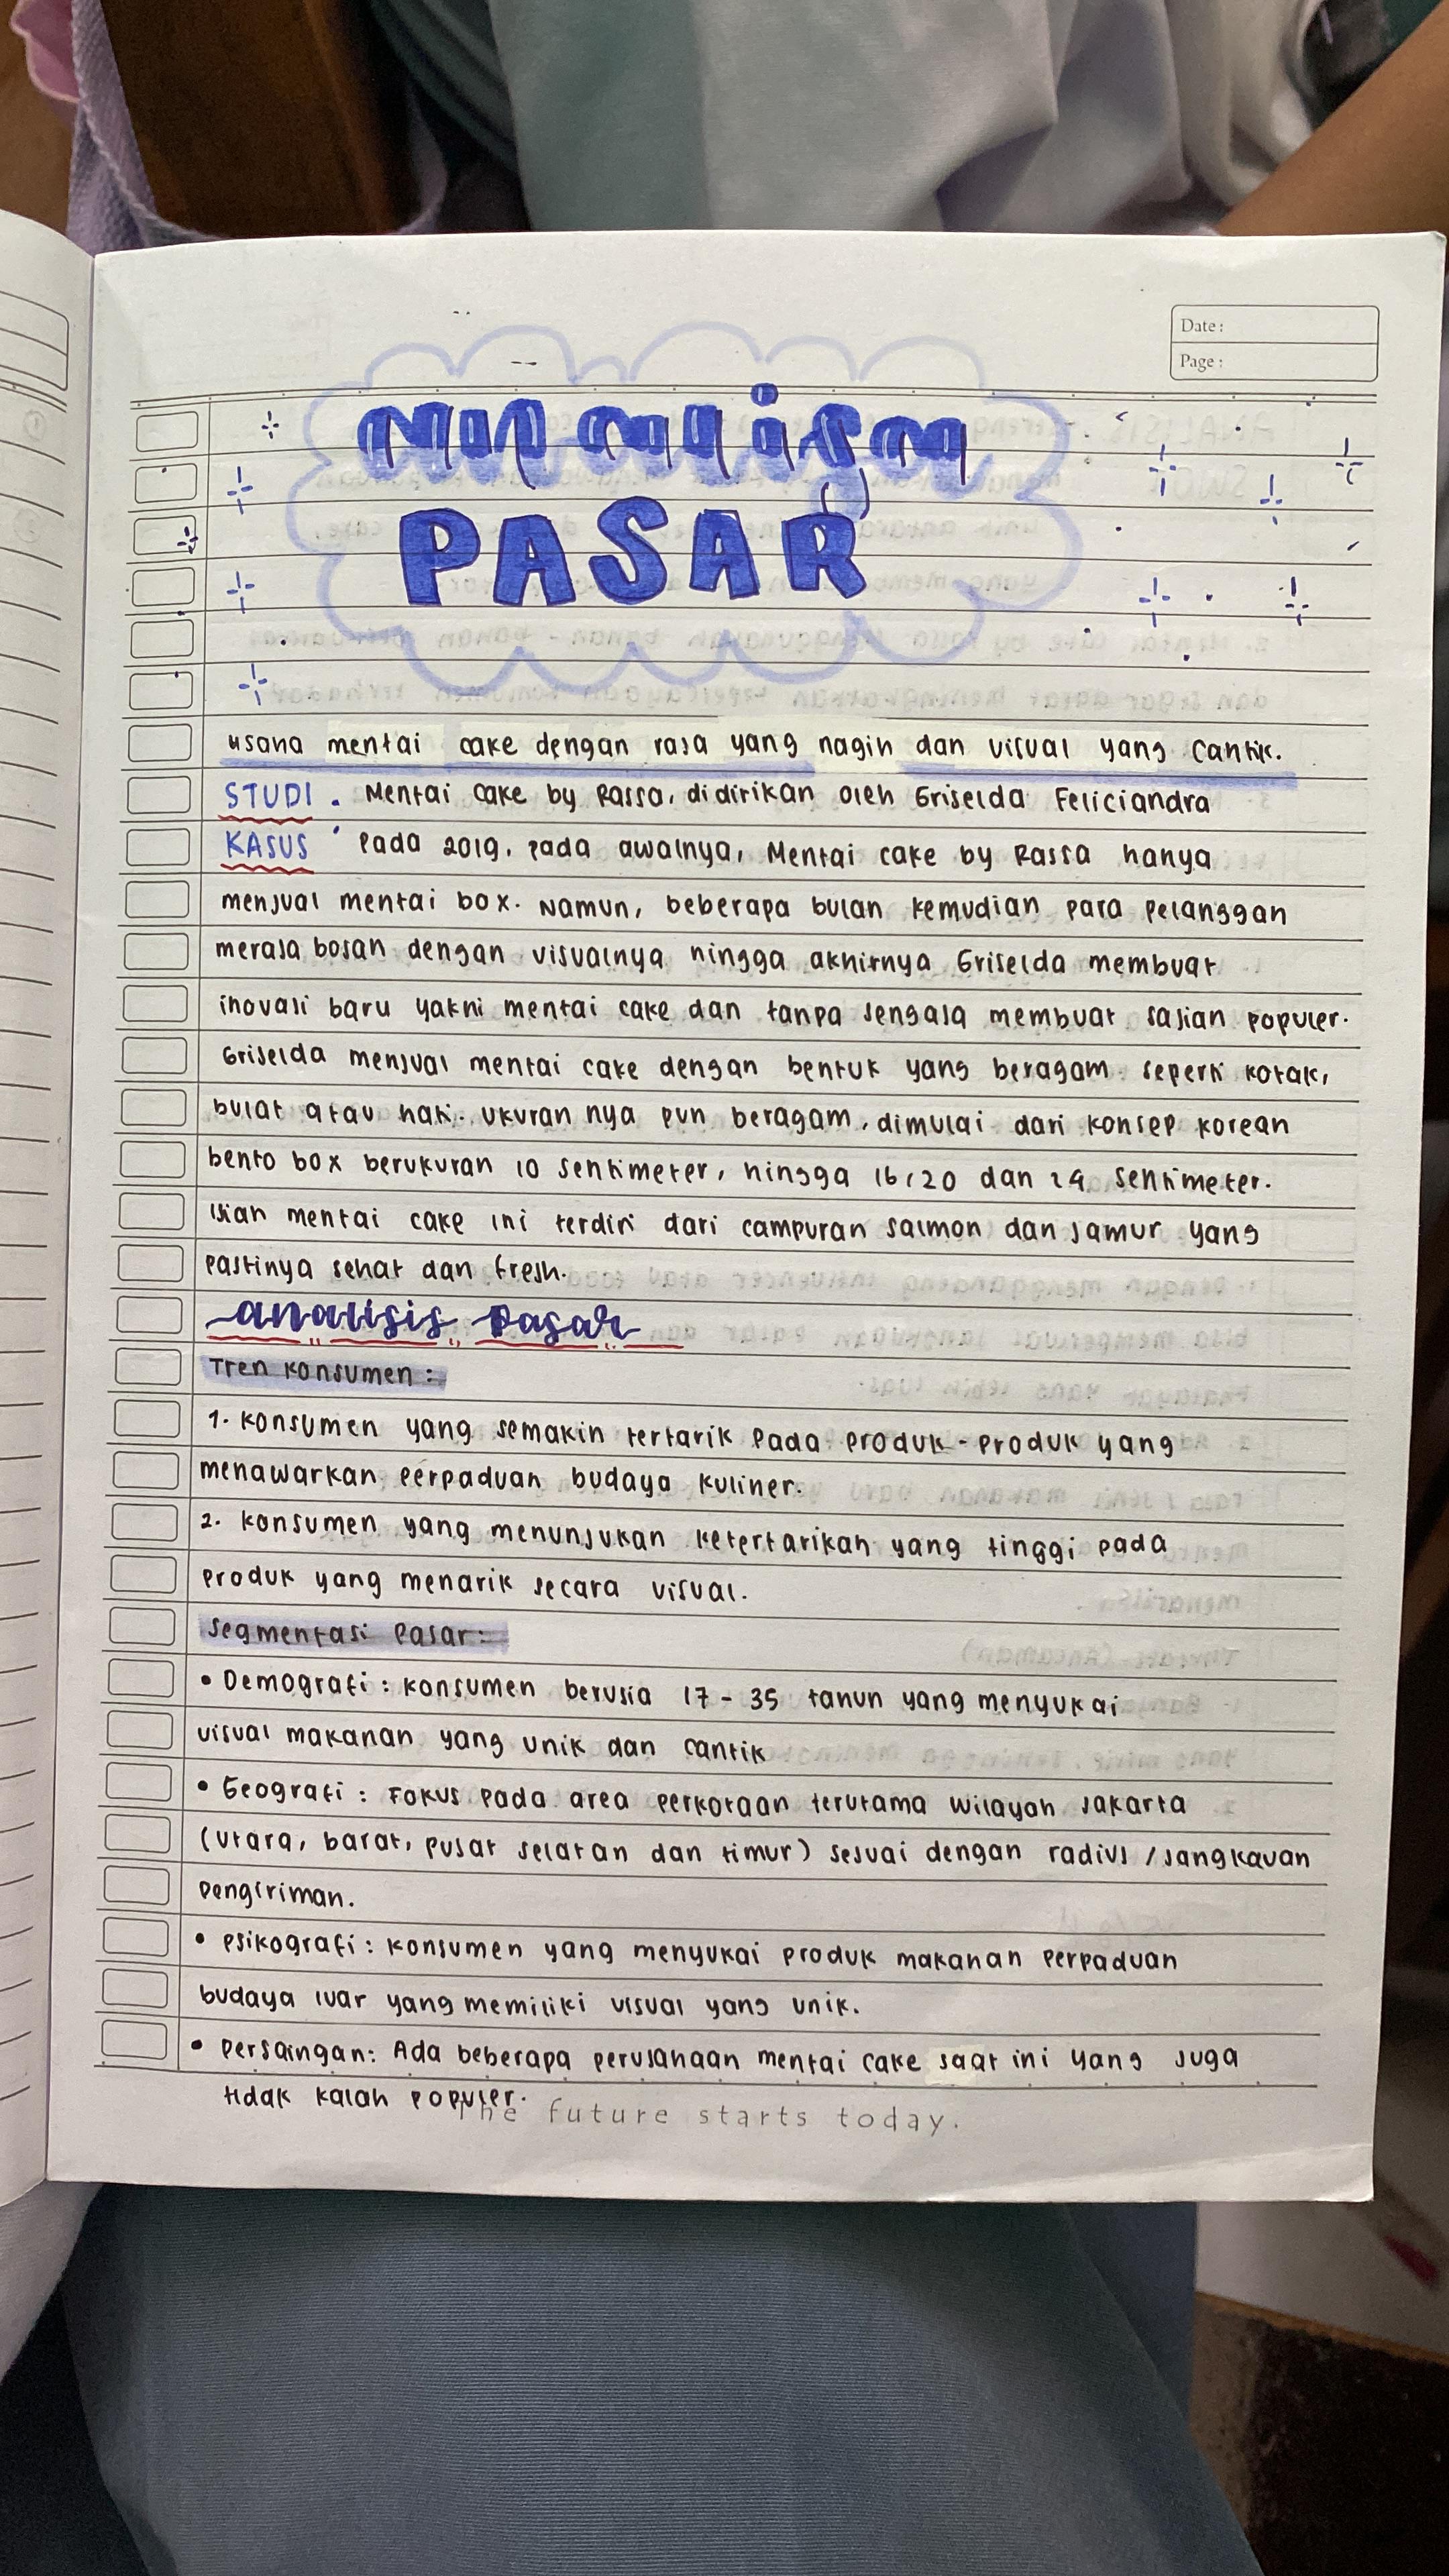 Date :
Page :
analisa
PASAR
usaha mentai cake dengan rasa yang nagih dan visual yang cantik.
STUDI : Mentai cake by Rassa, didirikan oleh Griselda Feliciandra
KASUS pada 2019. pada awalnya, Mentai cake by Rassa hanya
menjual mentai box. Namun, beberapa bulan kemudian para pelanggan
merasa bosan dengan visualnya hingga akhirnya Griselda membuat
inovasi baru yakni mentai cake dan tanpa sengasa membuat sajian populer.
Griselda menjual mentai cake dengan bentuk yang beragam seperti kotak,
bulat atau hati. Ukuran nya pun beragam, dimulai dari konsep korean
bento box berukuran 10 sentimeter, hingga 16, 20 dan 24 sentimeter.
Isian mentai cake ini terdiri dari campuran salmon dan jamur yang
pastinya sehat dan fresh.
analisis pasar
Tren konsumen :
1. konsumen yang semakin tertarik pada produk - produk yang
menawarkan perpaduan budaya kuliner.
2. konsumen yang menunjukan ketertarikan yang tinggi pada
produk yang menarik secara visual.
Segmentasi Pasar :
• Demografi : konsumen berusia 17 - 35 tahun yang menyukai
visual makanan yang unik dan cantik
• Geografi : Fokus pada area perkotaan terutama wilayah Jakarta
(utara, barat, pusat selatan dan timur) sesuai dengan radius / jangkauan
pengiriman.
• Psikografi : konsumen yang menyukai produk makanan perpaduan
budaya luar yang memiliki visual yang unik.
• Persaingan : Ada beberapa perusahaan mentai cake saat ini yang juga
tidak kalah populer.
The future starts today.